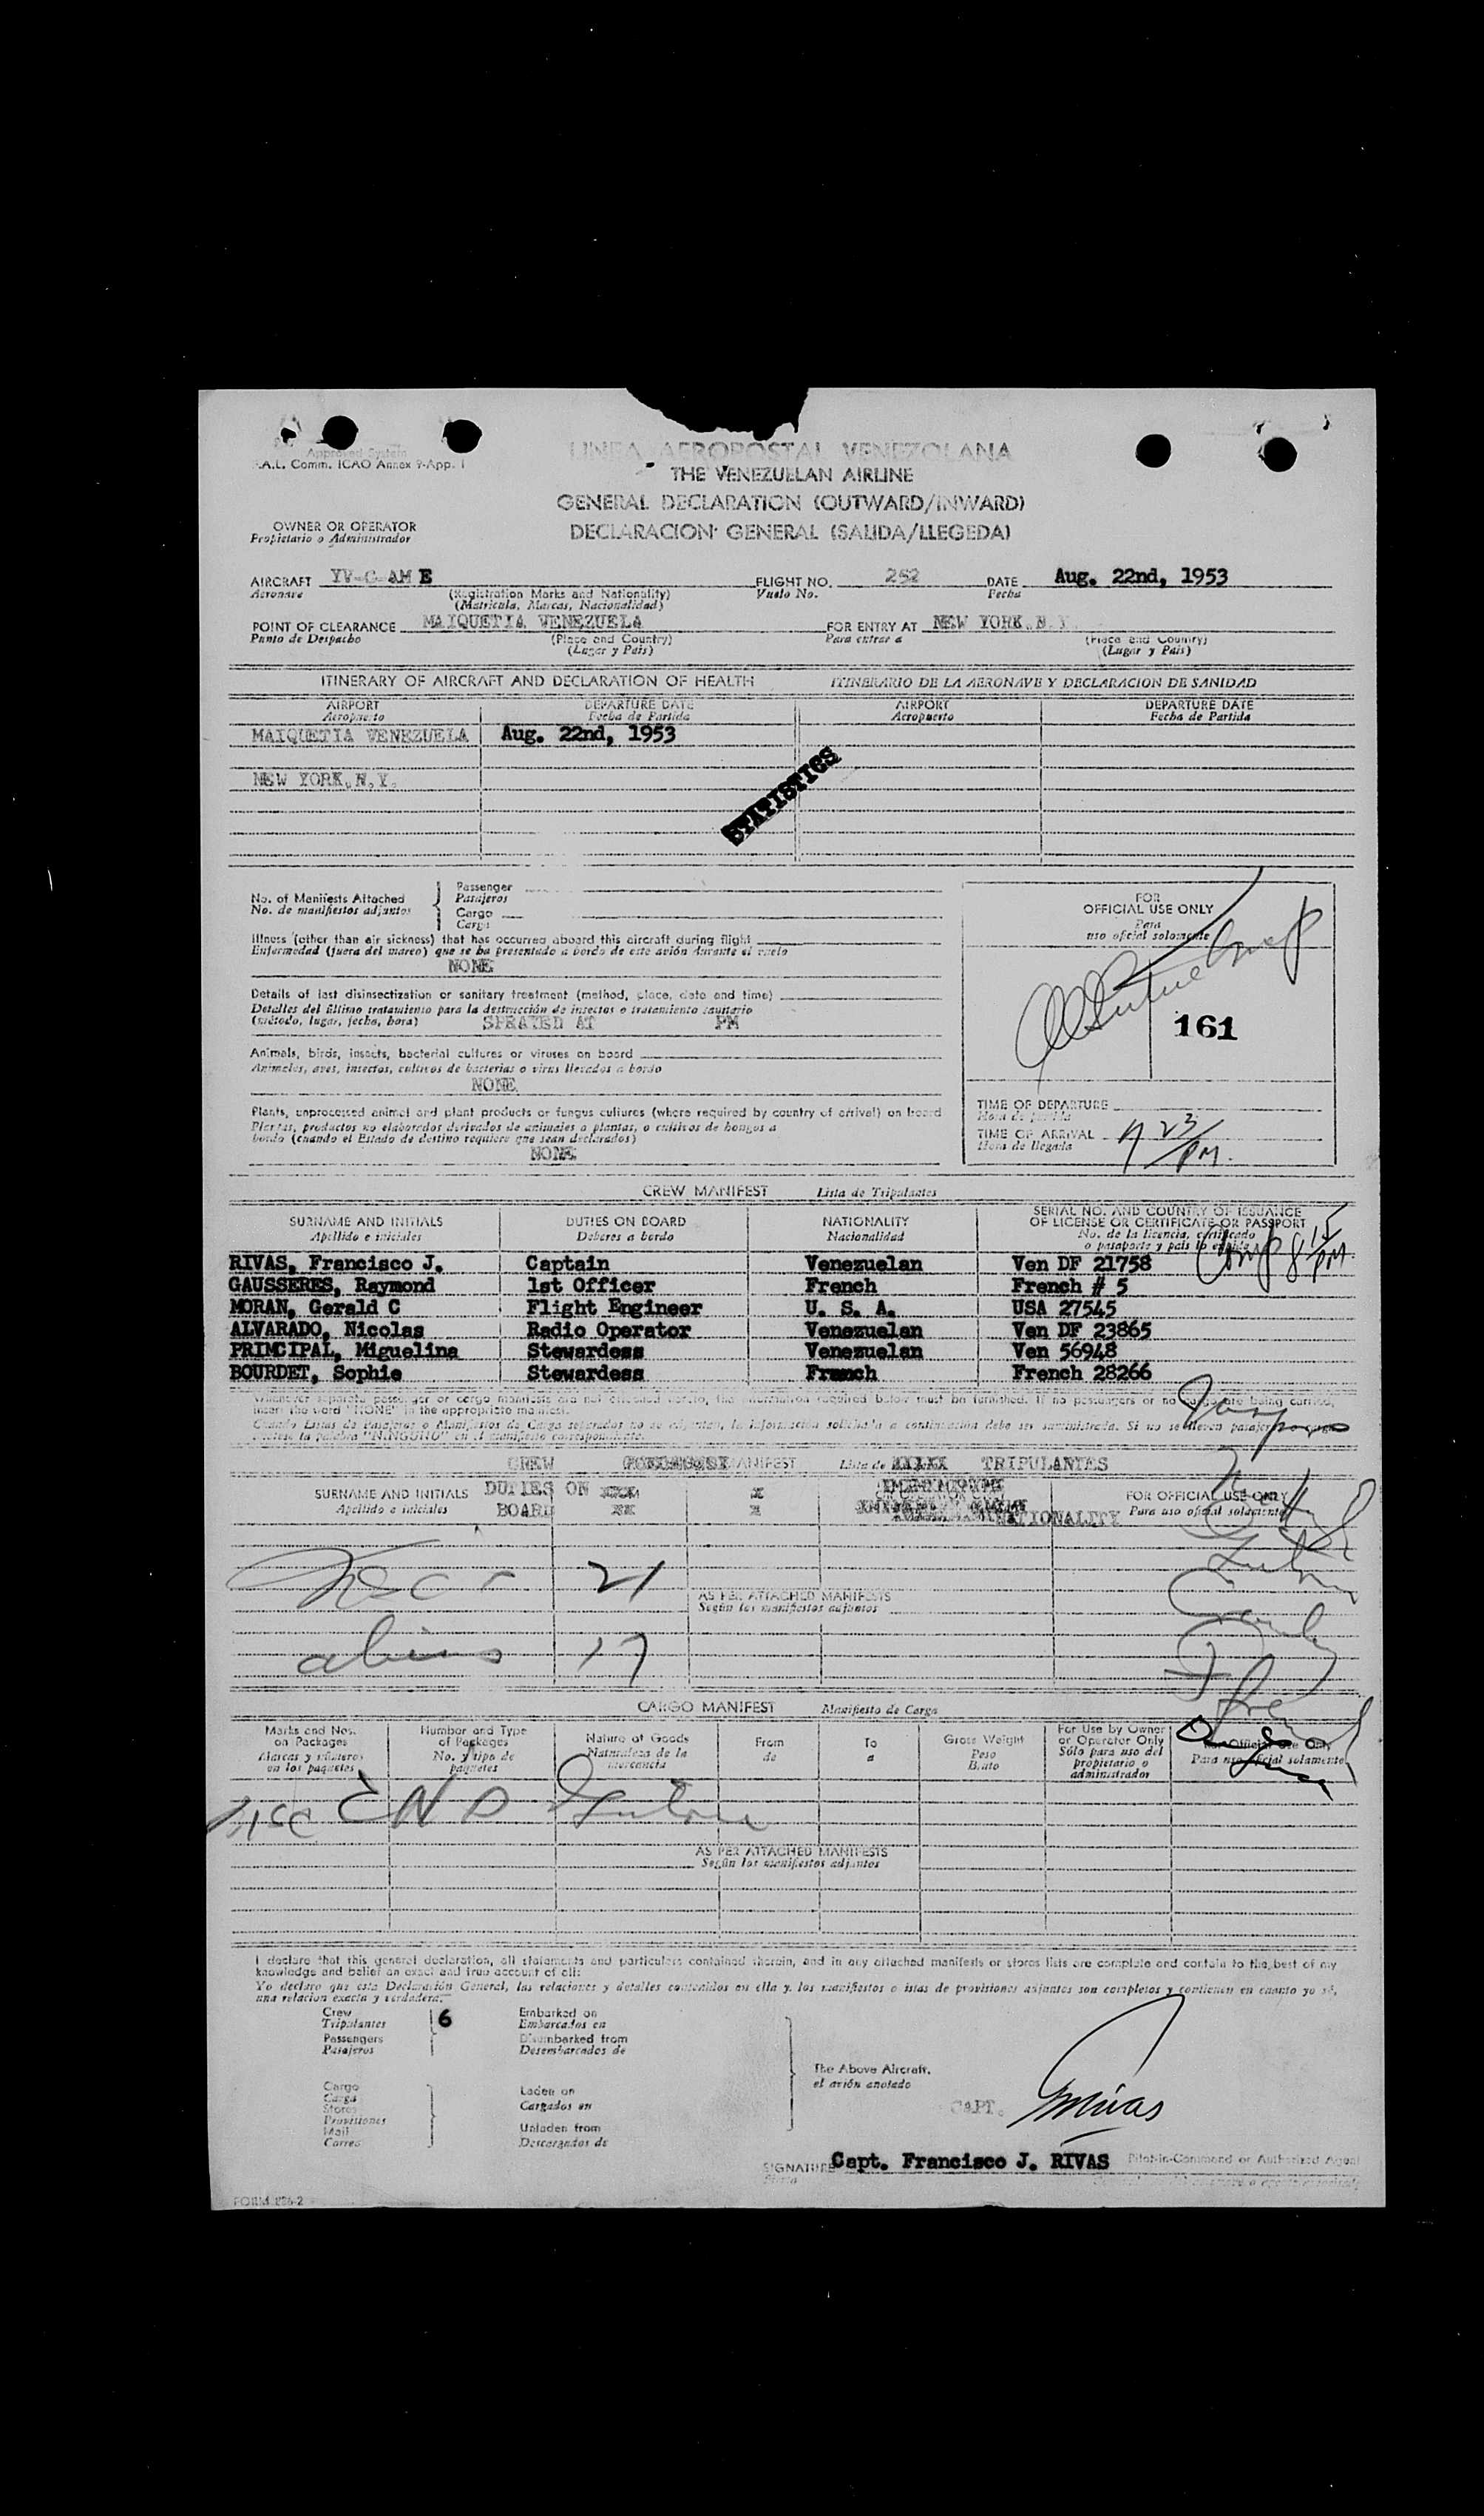 Approved System
F.A.L. Comm. ICAO Annex 9-App. 1
LINEA AEROPOSTAL VENEZOLANA
THE VENEZUELAN AIRLINE
GENERAL DECLARATION (OUTWARD/INWARD)
DECLARACION GENERAL (SALIDA/LLEGEDA)
OWNER OR OPERATOR
Propietario o Administrador
AIRCRAFT YV-C-AM E FLIGHT NO. 252 DATE Aug. 22nd, 1953
Aeronave (Registration Marks and Nationality) Vuelo No. Fecha
(Matricula, Marcas, Nacionalidad)
POINT OF CLEARANCE MAIQUETIA VENEZUELA FOR ENTRY AT NEW YORK, N.Y.
Punto de Despacho (Place and Country) Para entrar a (Place and Country)
(Lugar y Pais) (Lugar y Pais)
ITINERARY OF AIRCRAFT AND DECLARATION OF HEALTH ITINERARIO DE LA AERONAVE Y DECLARACION DE SANIDAD
AIRPORT DEPARTURE DATE AIRPORT DEPARTURE DATE
Aeropuerto Fecha de Partida Aeropuerto Fecha de Partida
MAIQUETIA VENEZUELA Aug. 22nd, 1953
NEW YORK, N.Y.
STATISTICS
No. of Manifests Attached
No. de manifiestos adjuntos
Passenger
Pasajeros
Cargo
Carga
Illness (other than air sickness) that has occurred aboard this aircraft during flight
Enfermedad (fuera del mareo) que se ha presentado a bordo de este avión durante el vuelo
NONE
Details of last disinsectization or sanitary treatment (method, place, date and time)
Detalles del último tratamiento para la destrucción de insectos o tratamiento sanitario
(método, lugar, fecha, hora) SPRAYED AT PM
Animals, birds, insects, bacterial cultures or viruses on board
Animales, aves, insectos, cultivos de bacterias o virus llevados a bordo
NONE
Plants, unprocessed animal and plant products or fungus cultures (where required by country of arrival) on board
Plantas, productos no elaborados derivados de animales o plantas, o cultivos de hongos a
bordo (cuando el Estado de destino requiere que sean declarados)
NONE
FOR
OFFICIAL USE ONLY
Para
uso oficial solamente
161
TIME OF DEPARTURE
Hora de partida
TIME OF ARRIVAL 7 23/PM.
Hora de llegada
CREW MANIFEST Lista de Tripulantes
SURNAME AND INITIALS DUTIES ON BOARD NATIONALITY SERIAL NO. AND COUNTRY OF ISSUANCE
OF LICENSE OR CERTIFICATE OR PASSPORT
Apellido e iniciales Deberes a bordo Nacionalidad No. de la licencia, certificado
o pasaporte y pais lo expide
8 15/PM.
RIVAS, Francisco J. Captain Venezuelan Ven DF 21758
GAUSSERES, Raymond 1st Officer French French # 5
MORAN, Gerald C Flight Engineer U. S. A. USA 27545
ALVARADO, Nicolas Radio Operator Venezuelan Ven DF 23865
PRIMCIPAL, Miguelina Stewardess Venezuelan Ven 56948
BOURDET, Sophie Stewardess French French 28266
Whenever separate passenger or cargo manifests are not attached hereto, the information required below must be furnished. If no passengers or no cargo are being carried,
insert the word "NONE" in the appropriate manifest.
Cuando Listas de Pasajeros o Manifiestos de Carga separados no se adjuntan, la información solicitada a continuación debe ser suministrada. Si no se lleven pasajeros
anótese la palabra "NINGUNO" en el manifiesto correspondiente.
CREW MANIFEST Lista de TRIPULANTES
SURNAME AND INITIALS DUTIES ON
Apellido e iniciales BOARD NATIONALITY
FOR OFFICIAL USE ONLY
Para uso oficial solamente
21
AS PER ATTACHED MANIFESTS
Según los manifiestos adjuntos
aliens 17
CARGO MANIFEST Manifiesto de Carga
Marks and Nos. on Packages
Marcas y números en los paquetes
Number and Type of Packages
No. y tipo de paquetes
Nature of Goods
Naturaleza de la mercancia
From
de
To
a
Gross Weight
Peso Bruto
For Use by Owner or Operator Only
Sólo para uso del propietario o administrador
For Official Use Only
Para uso oficial solamente
AS PER ATTACHED MANIFESTS
Según los manifiestos adjuntos
I declare that this general declaration, all statements and particulars contained therein, and in any attached manifests or stores lists are complete and contain to the best of my
knowledge and belief an exact and true account of all:
Yo declaro que esta Declaración General, las relaciones y detalles contenidos en ella y los manifiestos o istas de provisiones adjuntos son completos y contienen en cuanto yo sé,
una relacion exacta y verdadera.
Crew 6 Embarked on
Tripulantes Embarcados en
Passengers Disembarked from
Pasajeros Desembarcados de
The Above Aircraft,
el avión anotado
Cargo Laden on
Carga Cargados en
Stores
Provisiones
Mail Unladen from
Correo Descargados de
CAPT. Rivas
SIGNATURE Capt. Francisco J. RIVAS Pilot-in-Command or Authorized Agent
Firma
FORM 256-2